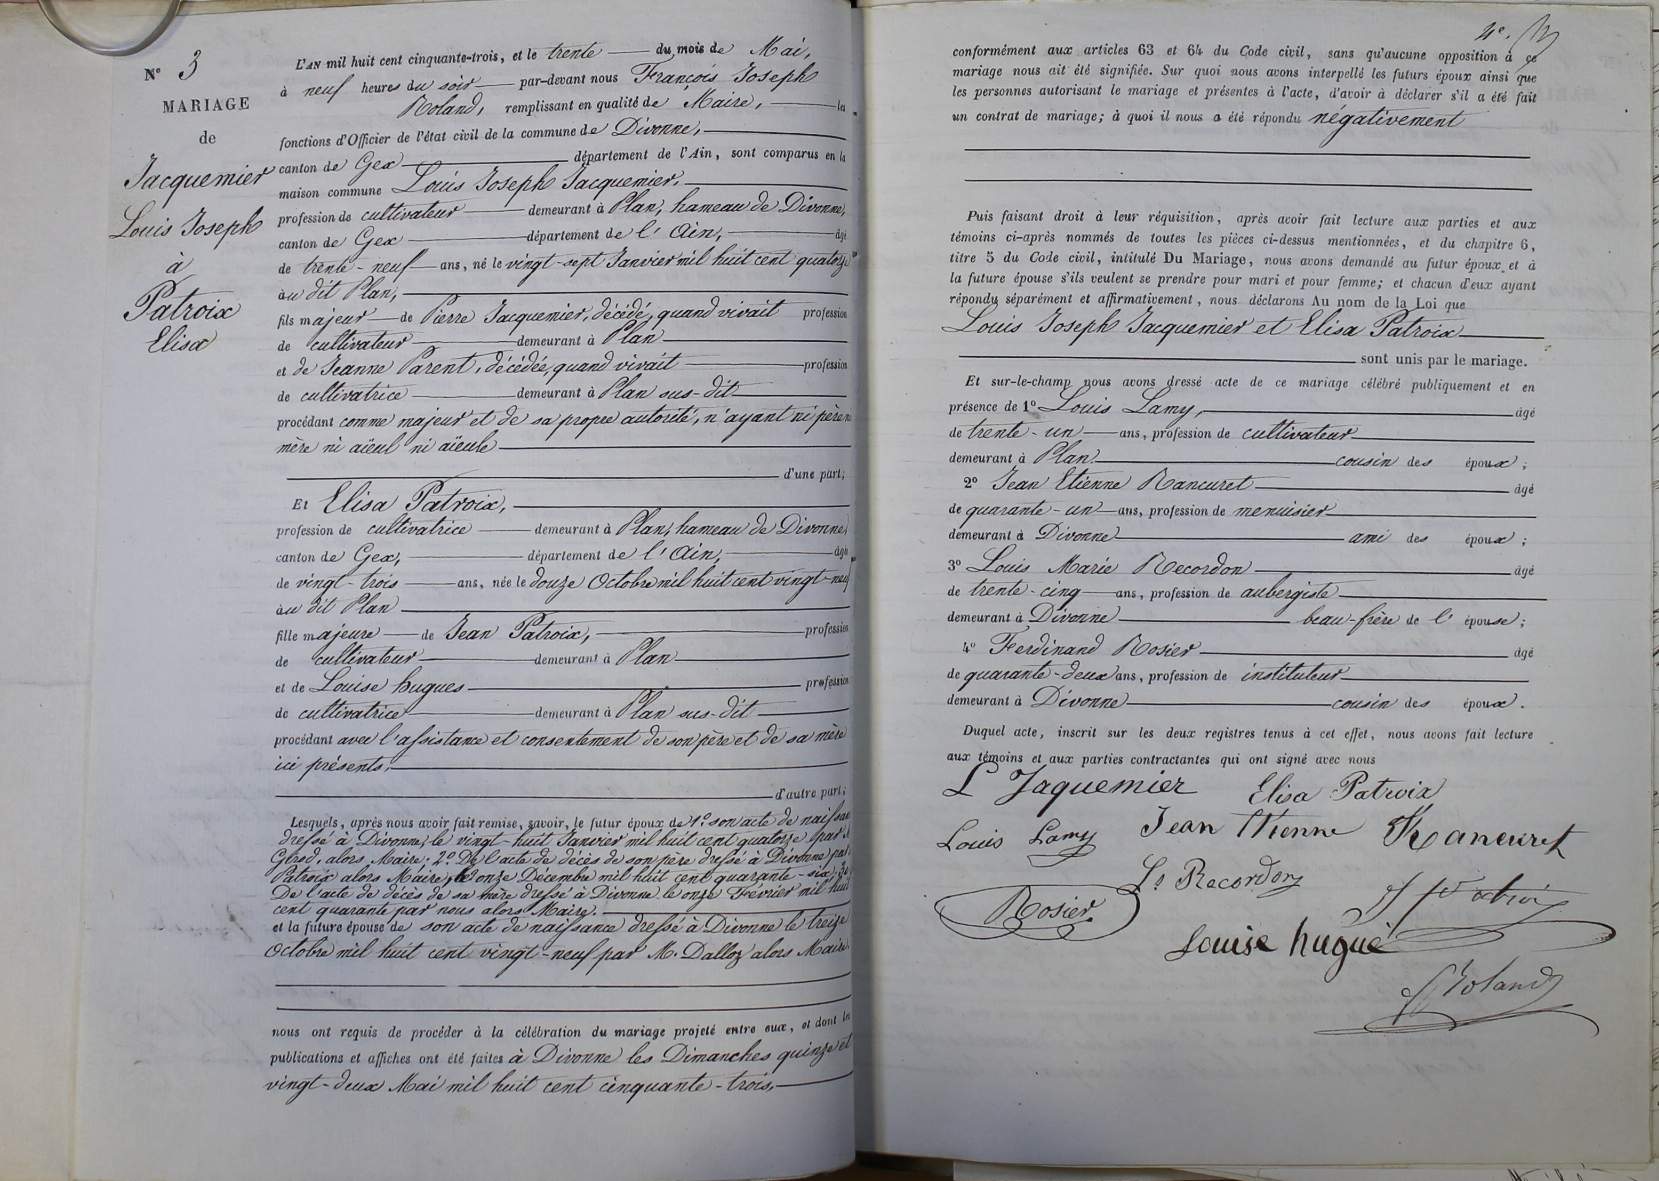 Nº 3
MARIAGE
de
Jacquemier
Louis Joseph
à
Patroix
Elisa
L'AN mil huit cent cinquante-trois, et le trente du mois de Mai,
à neuf heures du soir par-devant nous François Joseph
Roland, remplissant en qualité de Maire, les
fonctions d'Officier de l'état civil de la commune de Divonne,
canton de Gex département de l'Ain, sont comparus en la
maison commune Louis Joseph Jacquemier,
profession de cultivateur demeurant à Plan, hameau de Divonne,
canton de Gex département de l'Ain, âgé
de trente-neuf ans, né le vingt-sept Janvier mil huit cent quatorze
au dit Plan,
fils majeur de Pierre Jacquemier, décédé, quand vivait profession
de cultivateur demeurant à Plan
et de Jeanne Parent, décédée, quand vivait profession
de cultivatrice demeurant à Plan sus-dit
procédant comme majeur et de sa propre autorité, n'ayant ni père ni
mère ni aïeul ni aïeule
d'une part;
Et Elisa Patroix,
profession de cultivatrice demeurant à Plan, hameau de Divonne,
canton de Gex, département de l'Ain, âgée
de vingt-trois ans, née le douze Octobre mil huit cent vingt-neuf
au dit Plan
fille majeure de Jean Patroix, profession
de cultivateur demeurant à Plan
et de Louise hugues profession
de cultivatrice demeurant à Plan sus-dit
procédant avec l'assistance et consentement de son père et de sa mère
ici présents,
d'autre part;
Lesquels, après nous avoir fait remise, savoir, le futur époux de 1º son acte de naissance
dressé à Divonne, le vingt-huit Janvier mil huit cent quatorze par
Girod, alors Maire; 2º De l'acte de décès de son père dressé à Divonne par
Patroix alors Maire, le onze Décembre mil huit cent quarante-six; 3º
De l'acte de décès de sa mère dressé à Divonne le onze Février mil huit
cent quarante par nous alors Maire.
et la future épouse de son acte de naissance dressé à Divonne le treize
Octobre mil huit cent vingt-neuf par M. Dalloz alors Maire
nous ont requis de procéder à la célébration du mariage projeté entre eux, et dont les
publications et affiches ont été faites à Divonne les Dimanches quinze et
vingt-deux Mai mil huit cent cinquante-trois,
4e.
conformément aux articles 63 et 64 du Code civil, sans qu'aucune opposition à ce
mariage nous ait été signifiée. Sur quoi nous avons interpellé les futurs époux ainsi que
les personnes autorisant le mariage et présentes à l'acte, d'avoir à déclarer s'il a été fait
un contrat de mariage; à quoi il nous a été répondu négativement
Puis faisant droit à leur réquisition, après avoir fait lecture aux parties et aux
témoins ci-après nommés de toutes les pièces ci-dessus mentionnées, et du chapitre 6,
titre 5 du Code civil, intitulé Du Mariage, nous avons demandé au futur époux et à
la future épouse s'ils veulent se prendre pour mari et pour femme; et chacun d'eux ayant
répondu séparément et affirmativement, nous déclarons Au nom de la Loi que
Louis Joseph Jacquemier et Elisa Patroix
sont unis par le mariage.
Et sur-le-champ nous avons dressé acte de ce mariage célébré publiquement et en
présence de 1º Louis Lamy, âgé
de trente-un ans, profession de cultivateur
demeurant à Plan cousin des époux;
2º Jean Etienne Rancuret âgé
de quarante-un ans, profession de menuisier
demeurant à Divonne ami des époux;
3º Louis Marie Recordon âgé
de trente-cinq ans, profession de aubergiste
demeurant à Divonne beau-frère de l'épouse;
4º Ferdinand Rosier âgé
de quarante-deux ans, profession de instituteur
demeurant à Divonne cousin des époux.
Duquel acte, inscrit sur les deux registres tenus à cet effet, nous avons fait lecture
aux témoins et aux parties contractantes qui ont signé avec nous
L Jaquemier Elisa Patroix
Louis Lamy Jean Etienne Rancuret
Ls Recordon
Rosier
Louise hugue
Roland